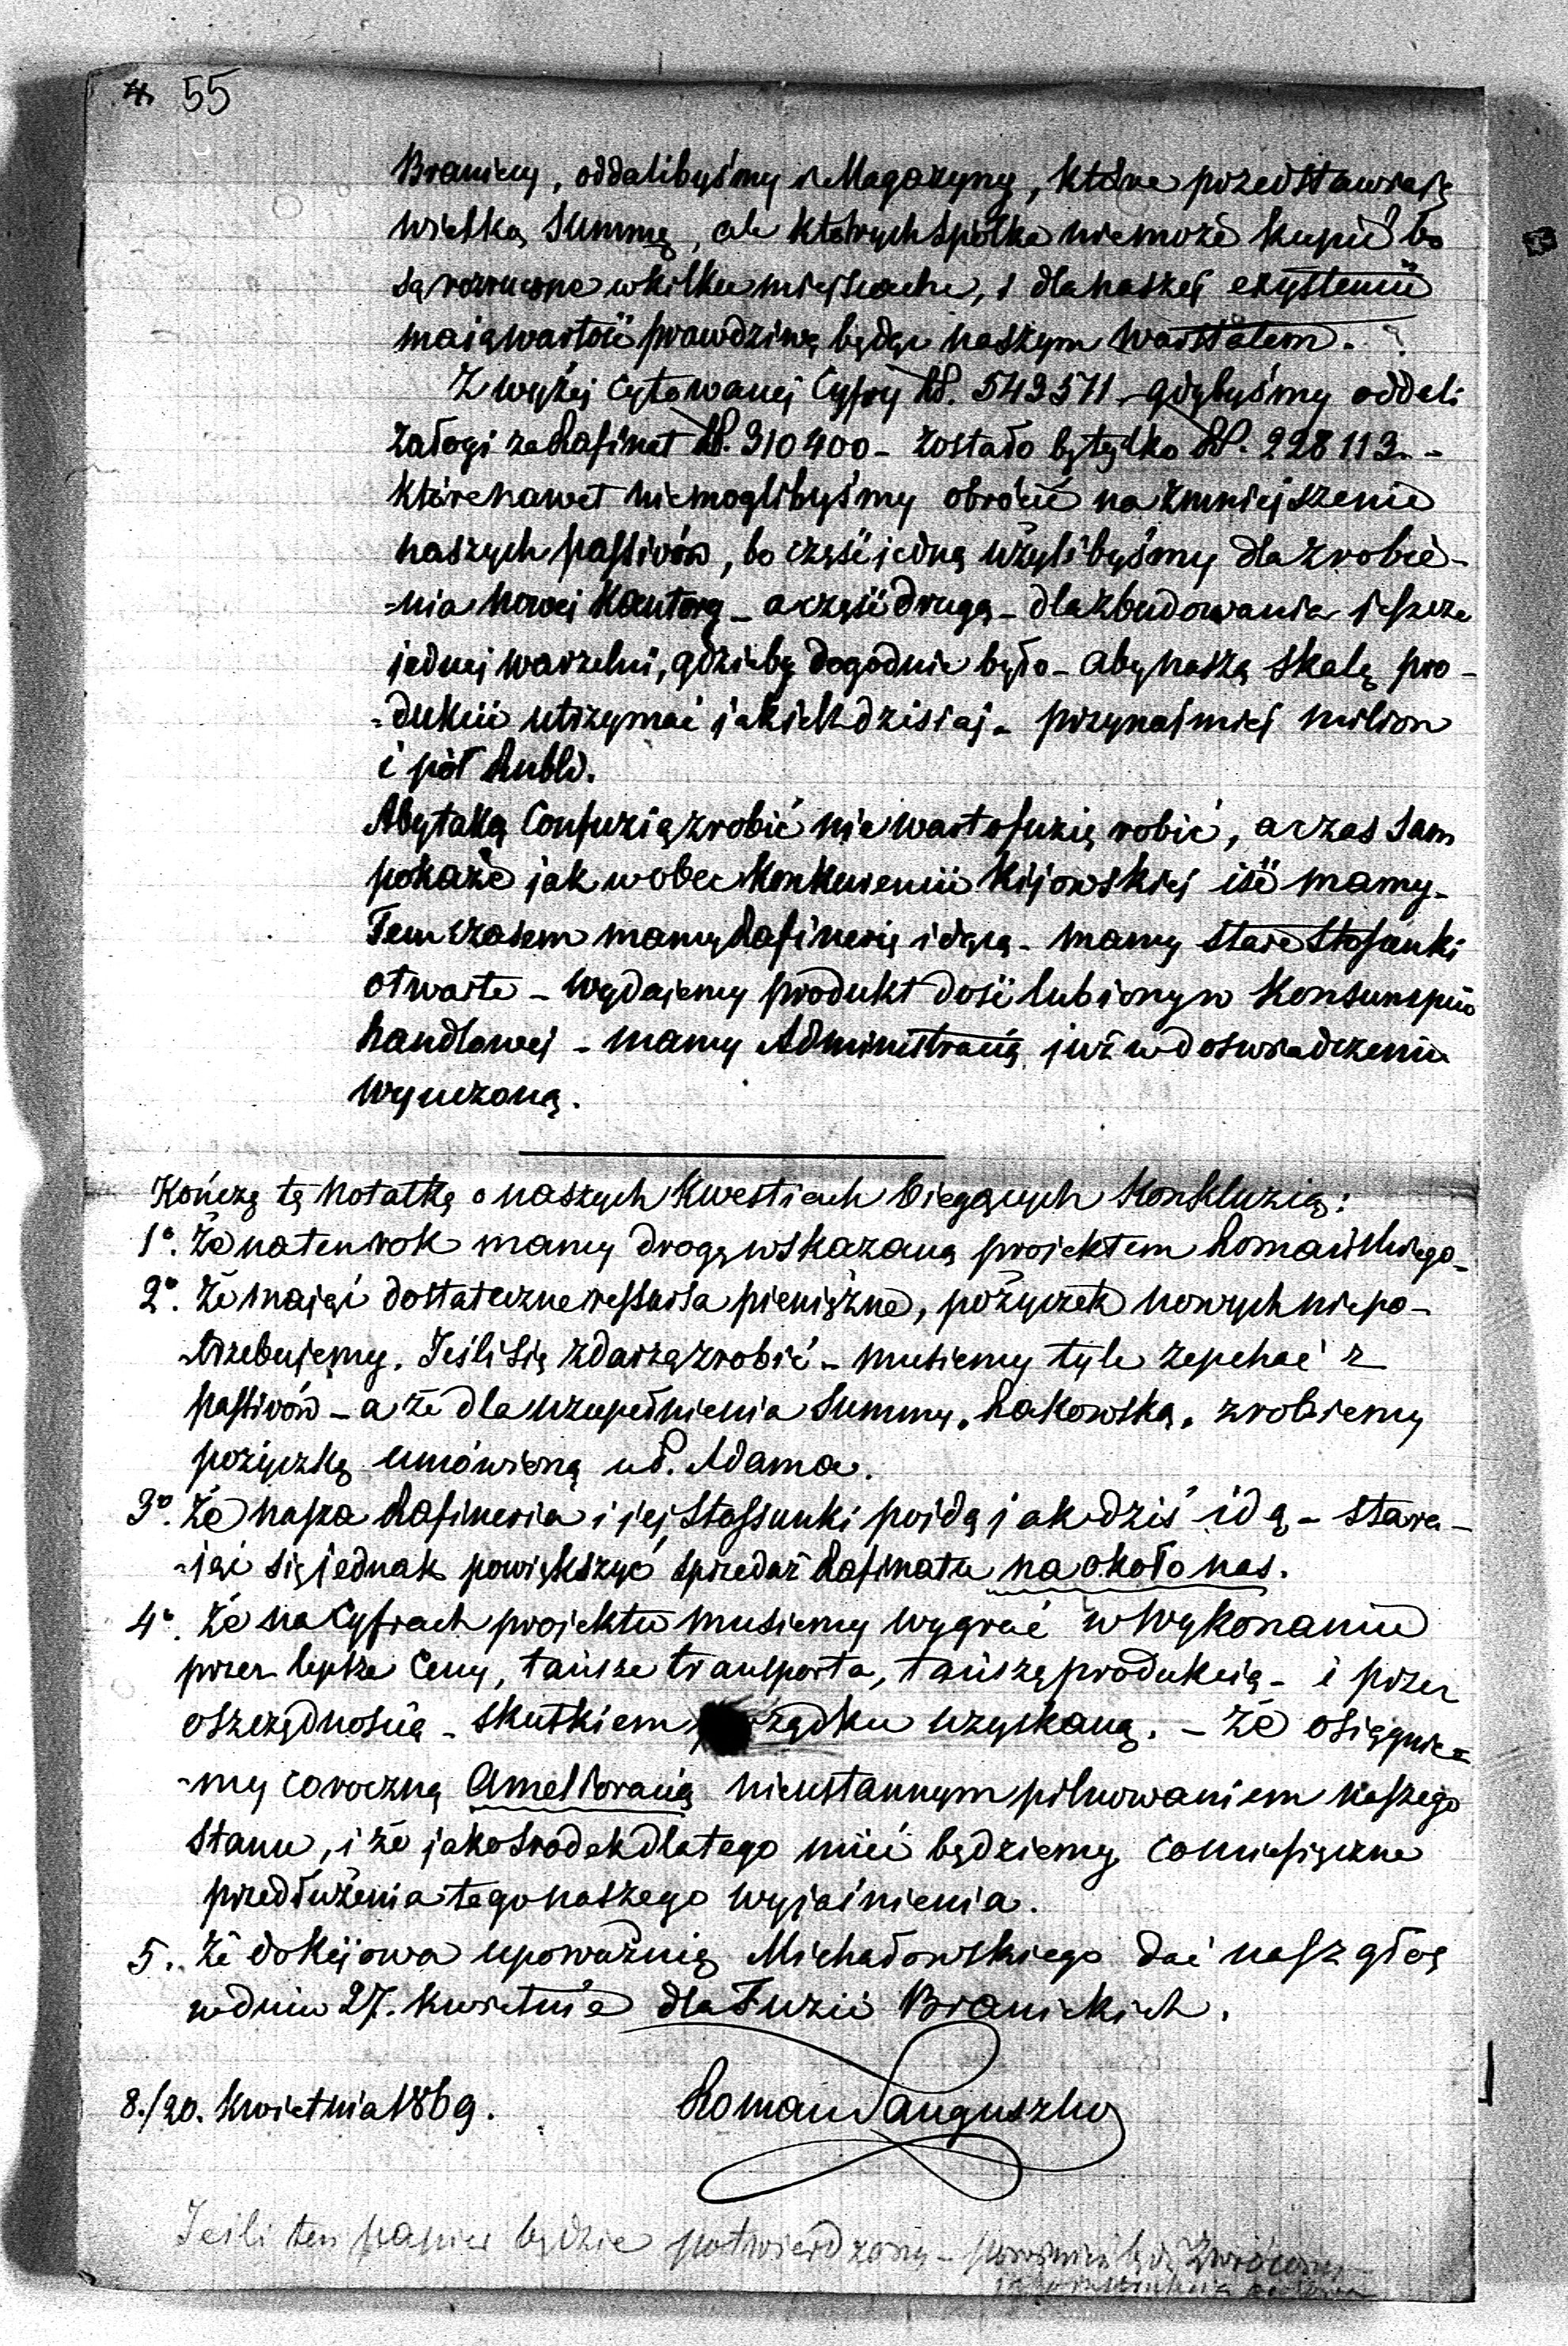 55
Braniccy, oddalibyśmy i Magazyny, które przedstawiają
wielką Summę, ale których Spółka niemoże kupić bo
są rozrzucone w kilku miejscach, i dla naszej exystencii
mają wartość prawdziwą będąc naszym warstatem.
Z wyżej cytowanej Cyfry RS. 543571 - gdybyśmy oddali
Załogi za Rafinat RS. 310400 - zostało by tylko RS. 228113. -
które nawet niemoglibyśmy obrócić na zmniejszenie
naszych passivów, bo część jedną użylibyśmy dla zrobie-
-nia nowej Kantory - a część drugą - dla zbudowania jeszcze
jednej warzelni, gdzieby dogodnie było - aby naszą skalę pro-
-dukcii utrzymać jak jest dzisiaj - przynajmniej milion
i pół Rubli.
Aby taką Confuzią zrobić nie warto fuzię robić, a czas sam
pokaże jak wobec Konkurencii Kijowskiej iść mamy.
Tem czasem mamy Rafinerię idącą - mamy stare Stosunki
otwarte - wydajemy produkt dość lubiony w Konsumpcii
handlowej - mamy Administracią już w doswiadczeniu
wyuczoną.
Kończę tę Notatkę o naszych Kwestiach bieżących Konkluzią:
1°. Że na ten rok mamy drogę wskazaną projektem Romańskiego -
2°. Że mając dostateczne ressursa pieniężne, pożyczek nowych niepo-
-trzebujemy. Jeśli się zdarzą zrobić - musiemy tyle zepchać z
passivów - a że dla uzupełnienia Summy, Rakowską, zrobiemy
pożyczkę umówioną u P. Adama.
3°. Że nasza Rafineria i jej Stossunki pójdą jak dziś idą - stara-
-jąc się jednak powiększyć sprzedaż Rafinatu na około nas.
4°. Że na Cyfrach projektu musiemy wygrać w wykonaniu
przez lepsze Ceny, tańsze transporta, tańszą produkcią - i przez
oszczędnością - skutkiem porządku uzyskaną. - Że osiągnie-
-my coroczną Amelioracią nieustannym pilnowaniem naszego
Stanu, i że jako środek dla tego mieć będziemy comiesięczne
przedłużenia tego naszego wyjaśnienia.
5. Że do Kijowa upoważnię Michałowskiego dać nasz głos
w dniu 27. Kwietnia dla Fuzii Branickich.
8./20. Kwietnia 1869.
Roman Sanguszko
Jeśli ten papier będzie potwierdzony - powinien być zwrócony